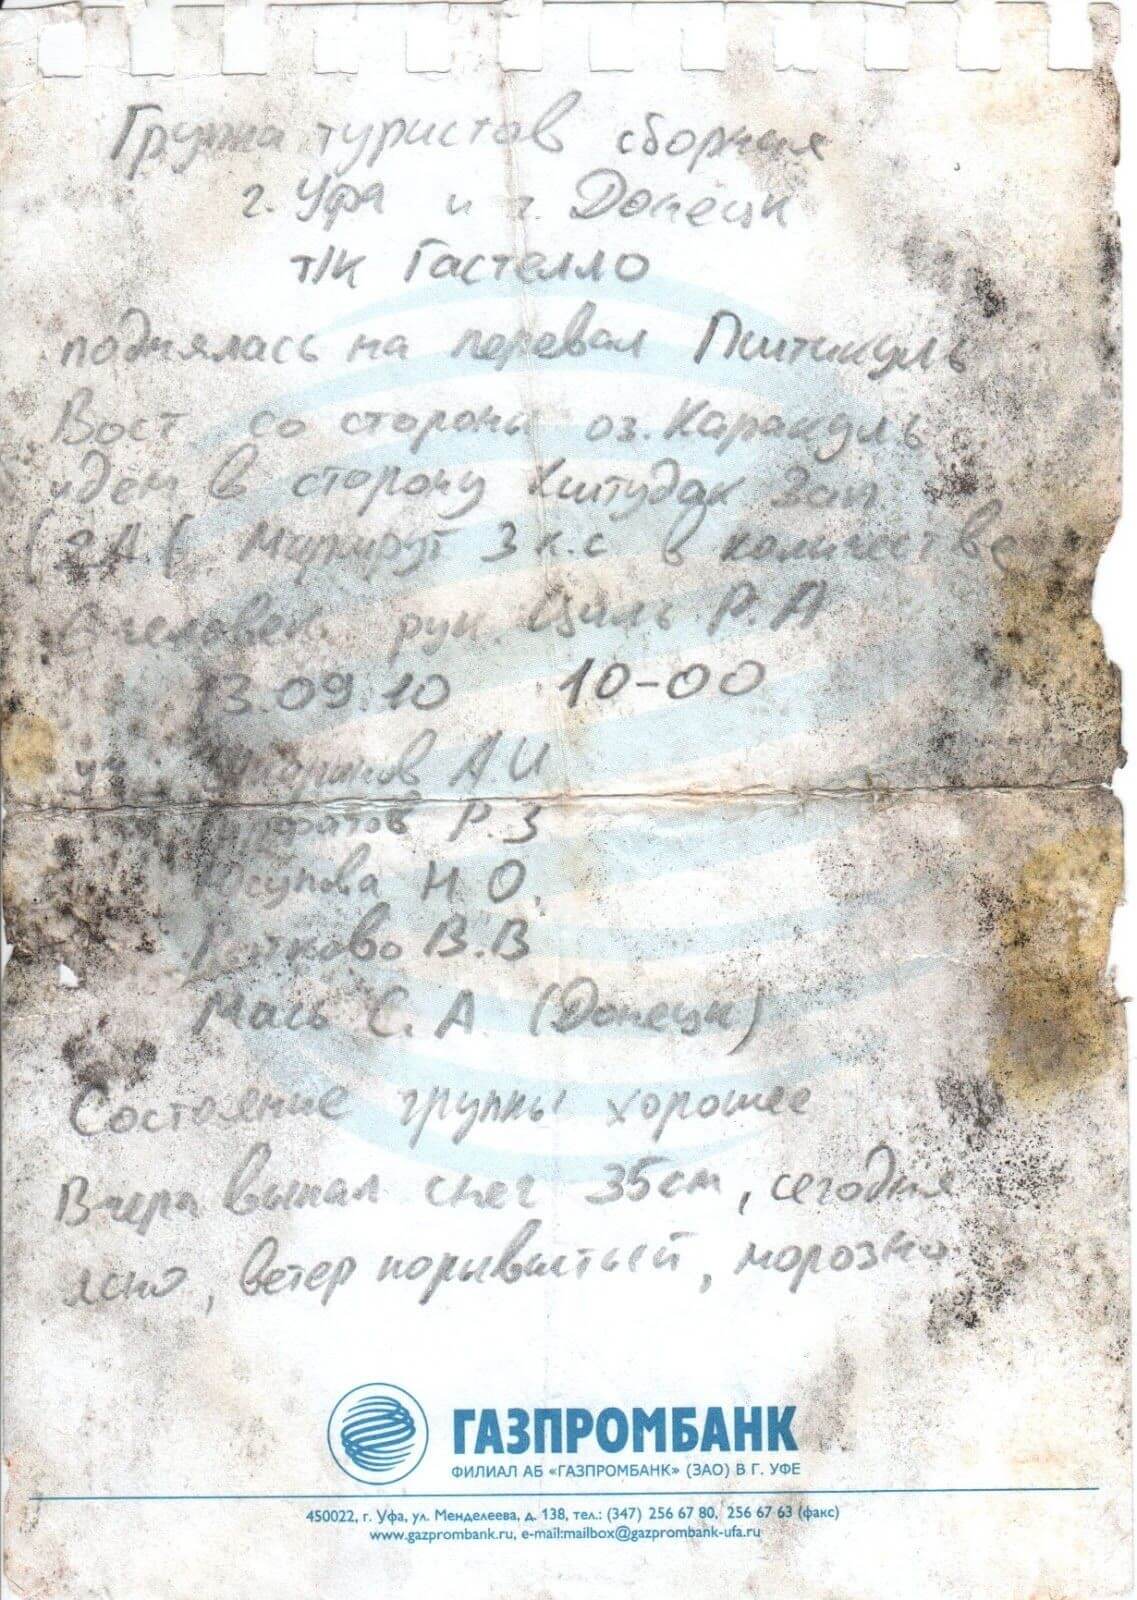 Группа туристов сборная
г. Уфа и г. Донецк
т/к Гастелло
поднялась на перевал Пиштикуль
Вост. со стороны оз. Каракуль
идём в сторону Киштудак Зап
(2А.( Маршрут 3 к.с в количестве
человек рук Циль Р.А
13.09.10 10-00
А.И
Р.З
Юсупова Н.О.
В.В
Мась С.А. (Донецк)
Состояние группы хорошее
Вчера выпал снег 35см, сегодня
ясно, ветер порывистый, морозно
ГАЗПРОМБАНК
ФИЛИАЛ АБ «ГАЗПРОМБАНК» (ЗАО) В Г. УФЕ
450022, г. Уфа, ул. Менделеева, д. 138, тел.: (347) 256 67 80, 256 67 63 (факс)
www.gazprombank.ru, e-mail:mailbox@gazprombank-ufa.ru